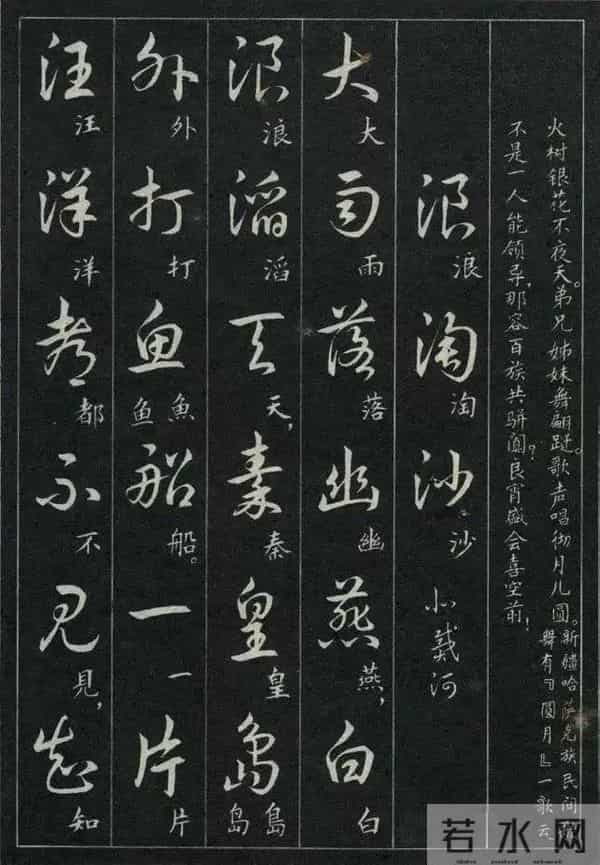 火树银花不夜天。弟兄姊妹舞翩跹。歌声唱彻月儿圆。
新疆哈萨克族民间
舞有『圆月』一歌云
不是一人能领导，那容百族共骈阗？良宵盛会喜空前！
浪淘沙 北戴河
浪淘沙
大雨落幽燕白
大雨落幽燕，白
浪滔天秦皇岛
浪滔天，秦皇島岛
外打鱼船一片
外打魚鱼船。一片
汪洋都不见知
汪洋都不見，知
若水网